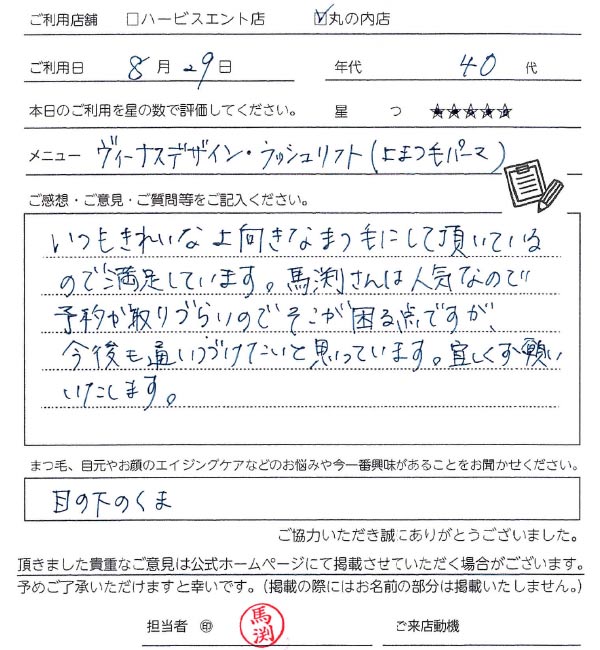 ご利用店舗 □ハービスエント店 ☑丸の内店
ご利用日 8月29日 年代 40代
本日のご利用を星の数で評価してください。 星 つ ★★★★★
メニュー ヴィーナスデザイン・ラッシュリフト(上まつ毛パーマ)
ご感想・ご意見・ご質問等をご記入ください。
いつもきれいな上向きなまつ毛にして頂いている
ので満足しています。馬渕さんは人気なので
予約が取りづらいのでそこが困る点ですが、
今後も通いつづけたいと思っています。宜しくお願い
いたします。
まつ毛、目元やお顔のエイジングケアなどのお悩みや今一番興味があることをお聞かせください。
目の下のくま
ご協力いただき誠にありがとうございました。
頂きました貴重なご意見は公式ホームページにて掲載させていただく場合がございます。
予めご了承いただけますと幸いです。(掲載の際にはお名前の部分は掲載いたしません。)
担当者 ㊞ 馬渕 ご来店動機